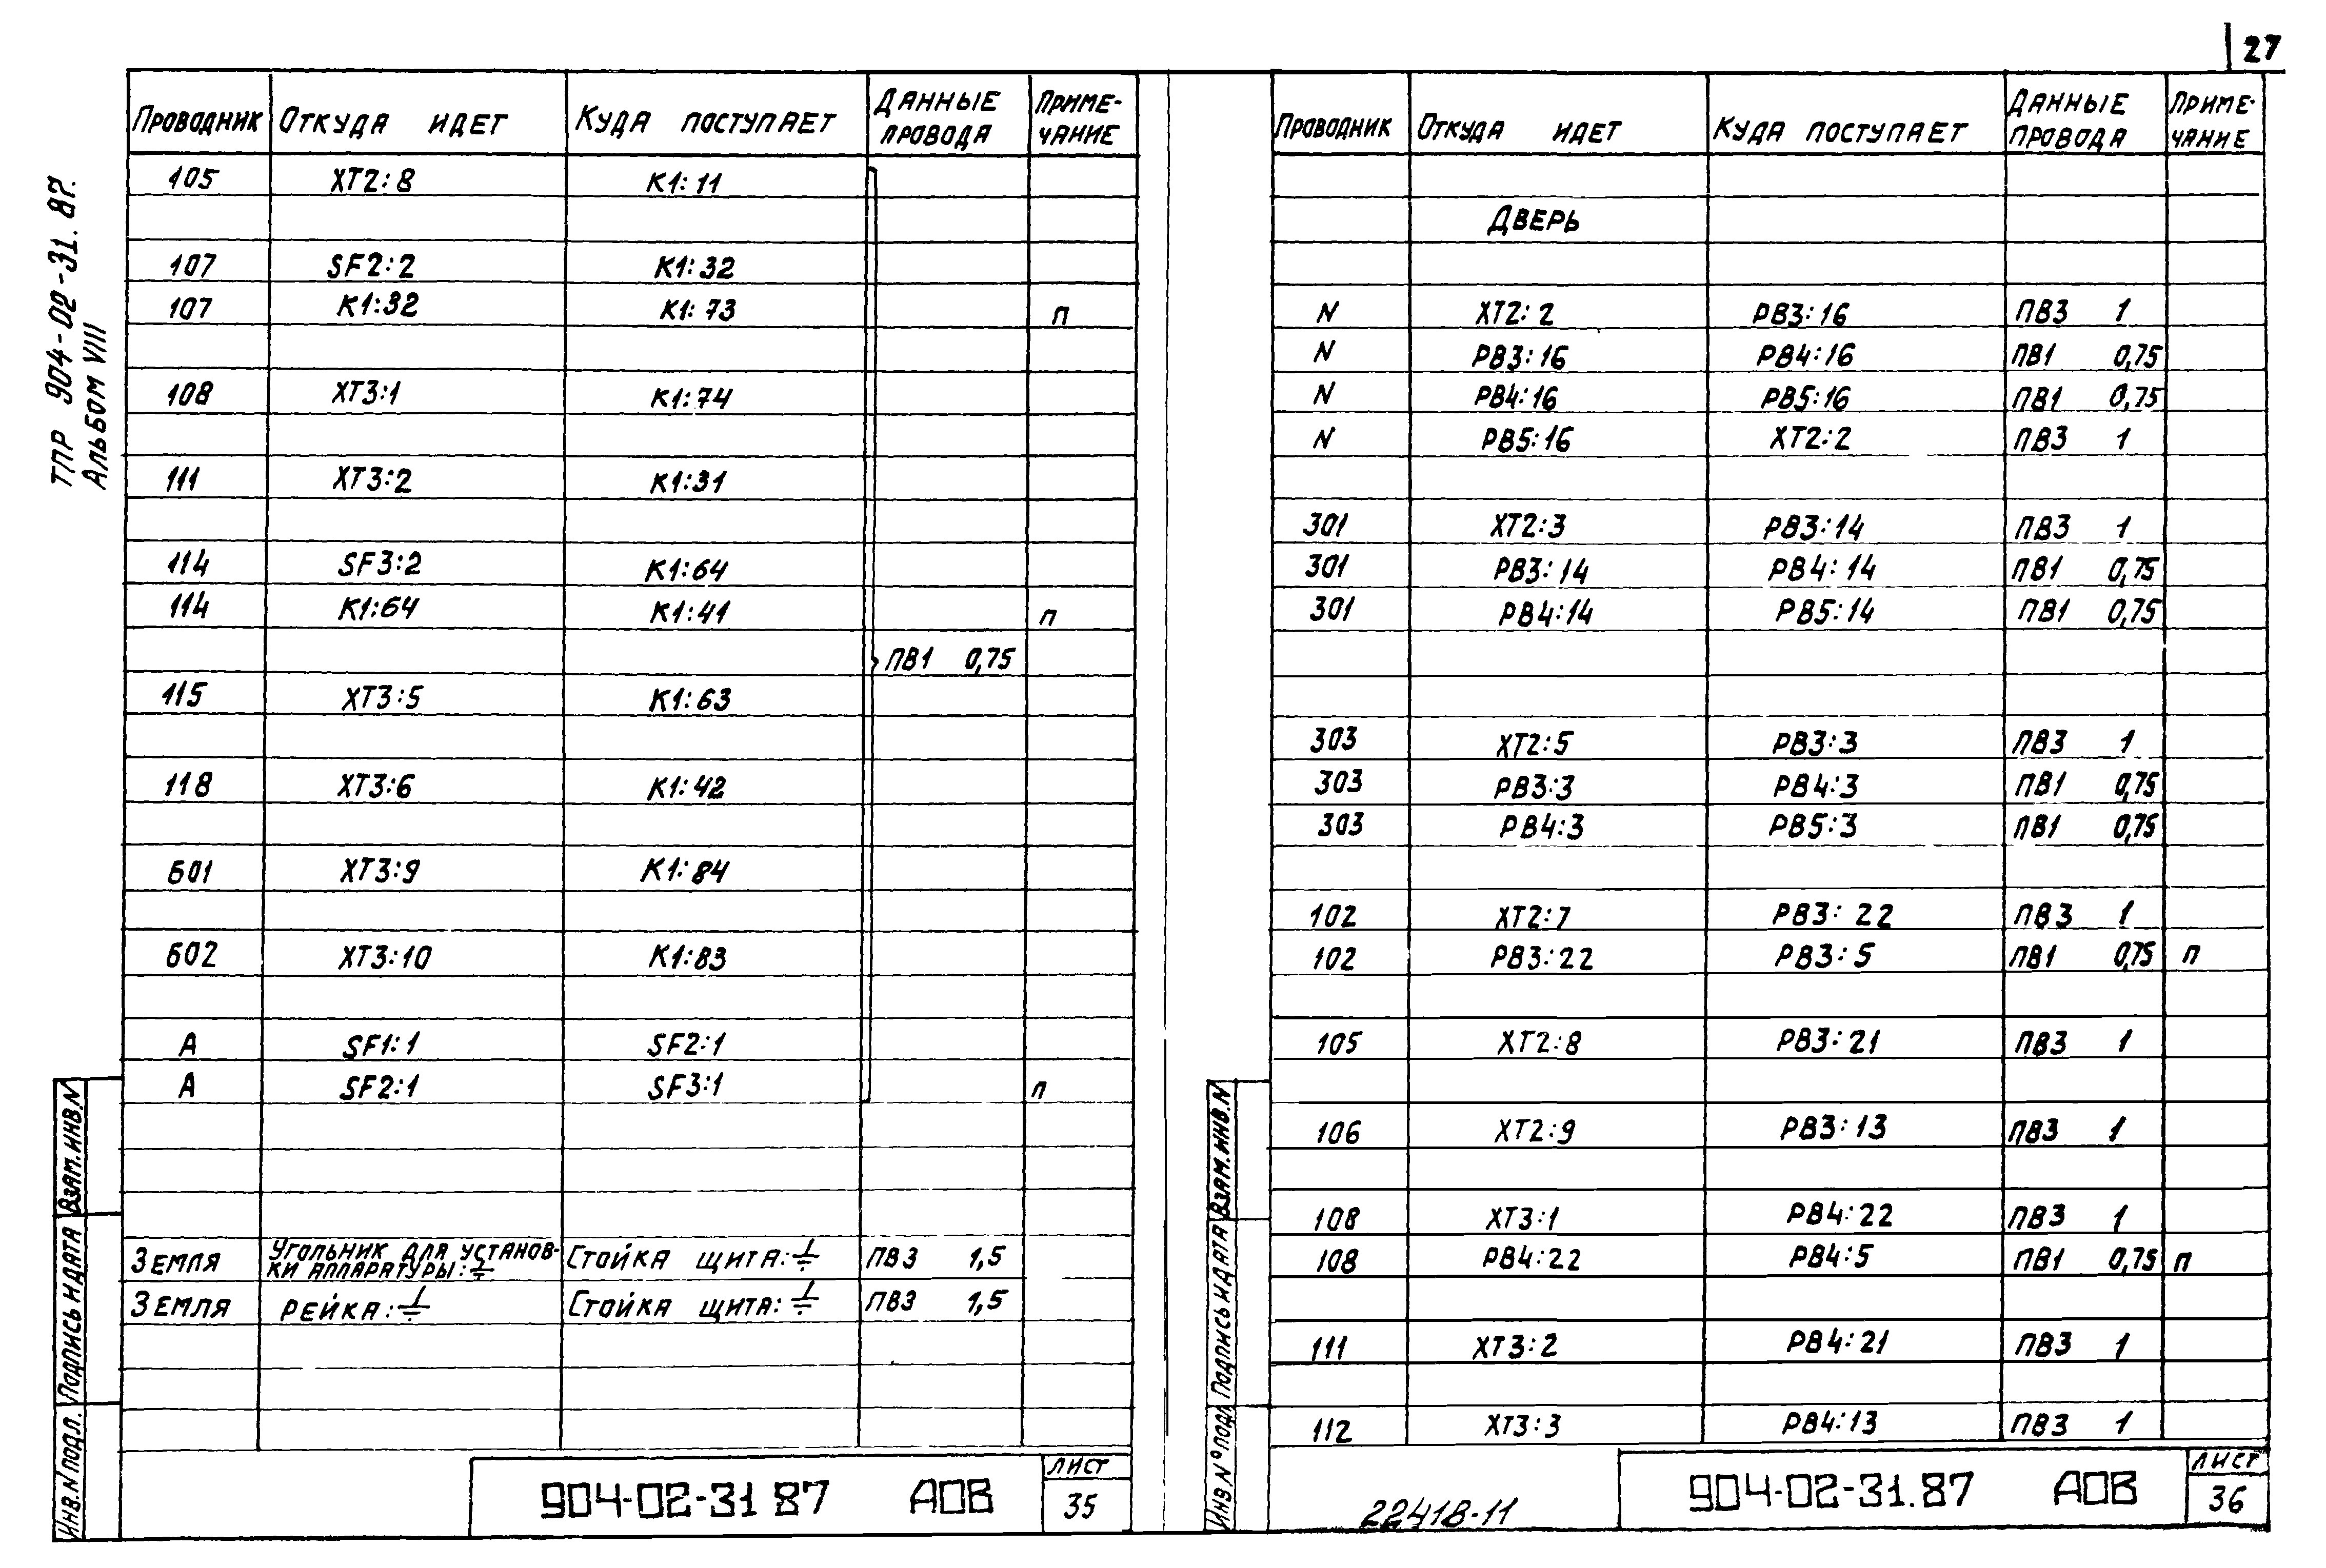 27
ТПР 904-02-31.87.
Альбом VIII
Проводник Откуда идет Куда поступает Данные провода Примечание
105 XT2:8 K1:11
107 SF2:2 K1:32
107 K1:32 K1:73 п
108 XT3:1 K1:74
111 XT3:2 K1:31
114 SF3:2 K1:64
114 K1:64 K1:41 п
ПВ1 0,75
115 XT3:5 K1:63
118 XT3:6 K1:42
601 XT3:9 K1:84
602 XT3:10 K1:83
А SF1:1 SF2:1
А SF2:1 SF3:1 п
Земля Угольник для установ-
ки аппаратуры:⏚ Стойка щита:⏚ ПВ3 1,5
Земля рейка:⏚ Стойка щита:⏚ ПВ3 1,5
904-02-31 87 АОВ
Лист
35
Инв.N подл. Подпись и дата Взам.инв.N
Проводник Откуда идет Куда поступает Данные провода Примечание
Дверь
N XT2:2 РВ3:16 ПВ3 1
N РВ3:16 РВ4:16 ПВ1 0,75
N РВ4:16 РВ5:16 ПВ1 0,75
N РВ5:16 XT2:2 ПВ3 1
301 XT2:3 РВ3:14 ПВ3 1
301 РВ3:14 РВ4:14 ПВ1 0,75
301 РВ4:14 РВ5:14 ПВ1 0,75
303 XT2:5 РВ3:3 ПВ3 1
303 РВ3:3 РВ4:3 ПВ1 0,75
303 РВ4:3 РВ5:3 ПВ1 0,75
102 XT2:7 РВ3:22 ПВ3 1
102 РВ3:22 РВ3:5 ПВ1 0,75 п
105 XT2:8 РВ3:21 ПВ3 1
106 XT2:9 РВ3:13 ПВ3 1
108 XT3:1 РВ4:22 ПВ3 1
108 РВ4:22 РВ4:5 ПВ1 0,75 п
111 XT3:2 РВ4:21 ПВ3 1
112 XT3:3 РВ4:13 ПВ3 1
22418-11
904-02-31.87 АОВ
Лист
36
Инв.N° подл Подпись и дата Взам.инв.N